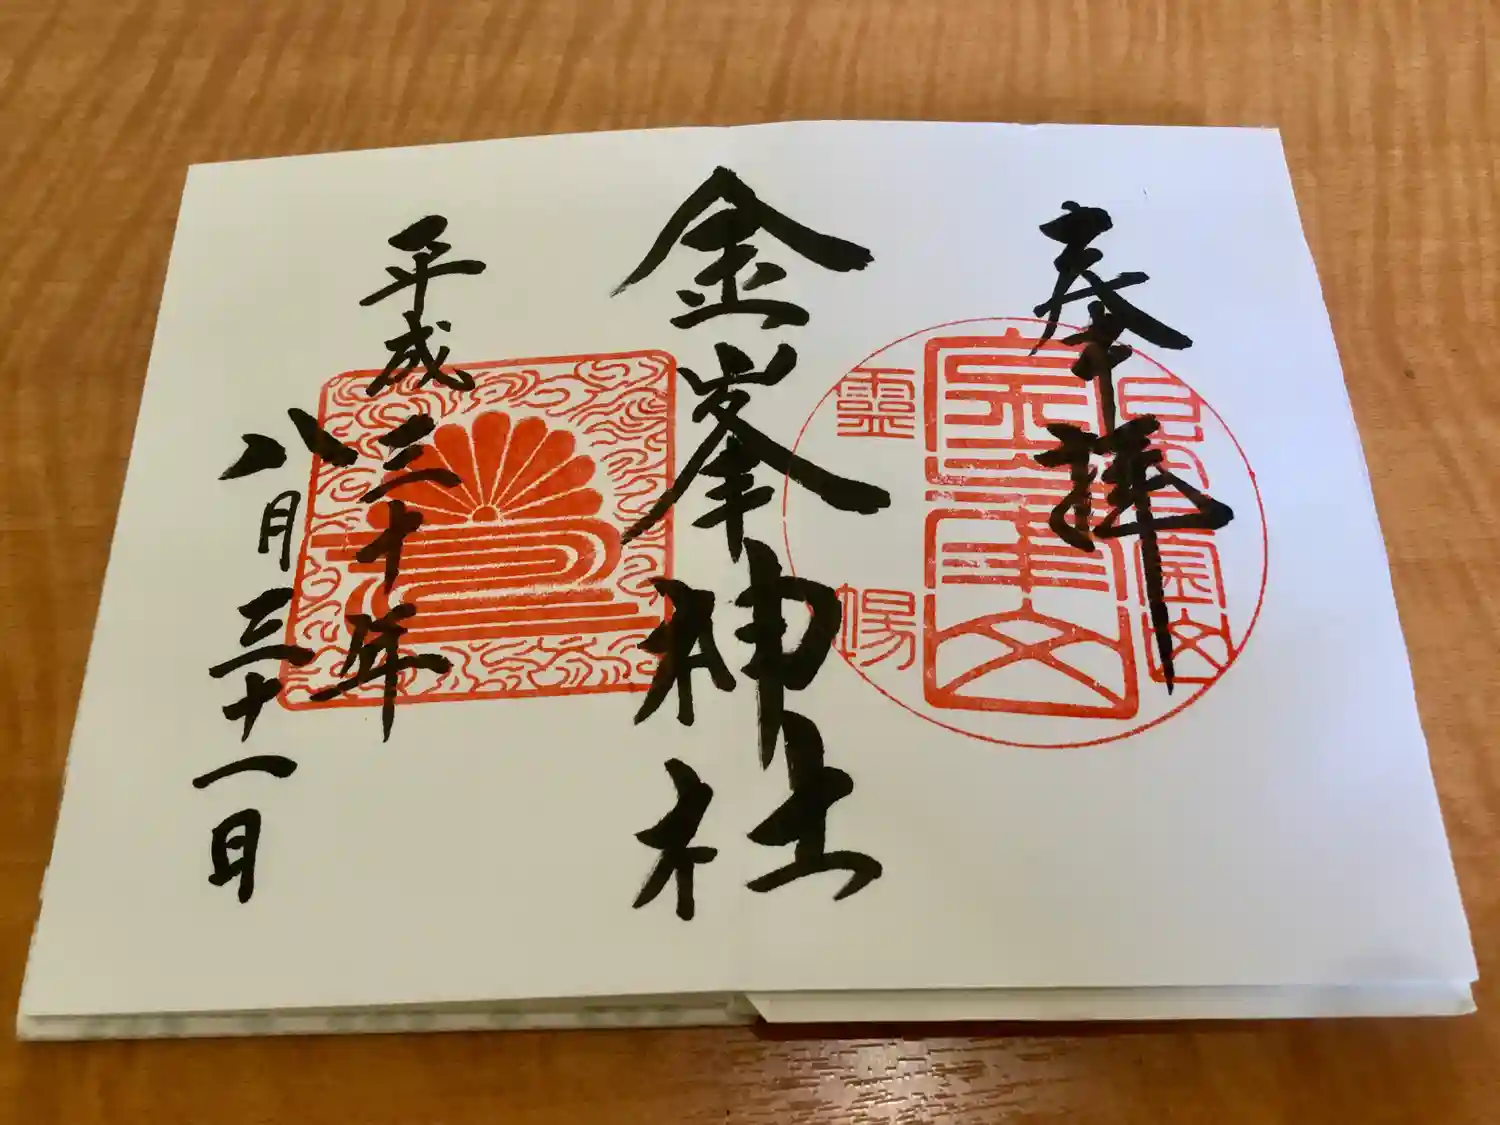 奉拝
金峯神社
平成三十年
八月三十一日
靈場